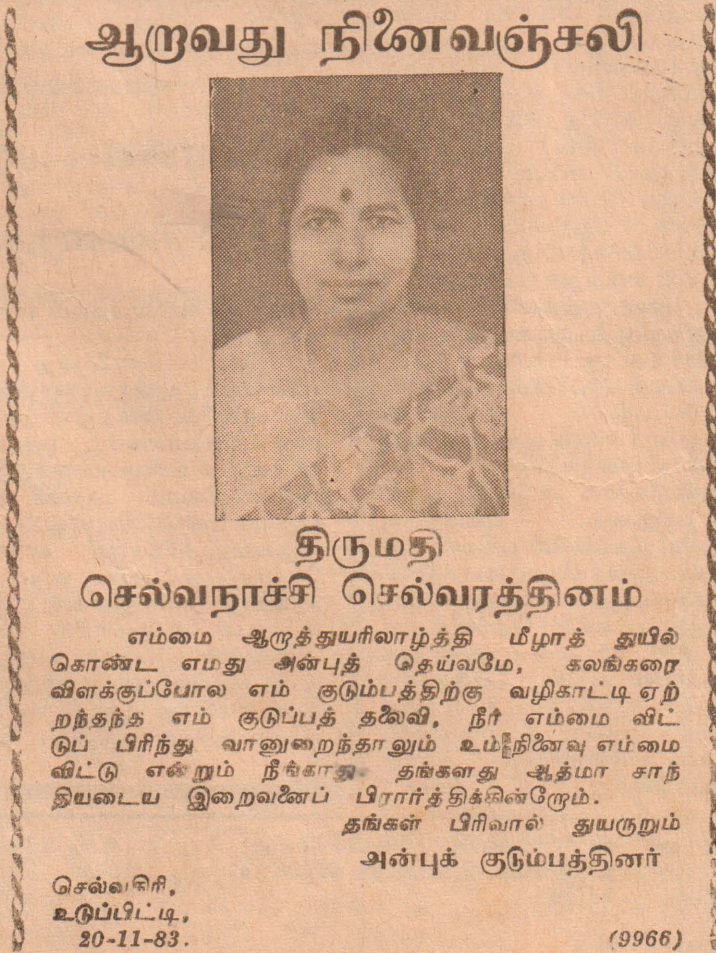 ஆறாவது நினைவஞ்சலி
திருமதி
செல்வநாச்சி செல்வரத்தினம்
எம்மை ஆறாத்துயரிலாழ்த்தி மீழாத் துயில்
கொண்ட எமது அன்புத் தெய்வமே, கலங்கரை
விளக்குப்போல எம் குடும்பத்திற்கு வழிகாட்டி ஏற்
றந்தந்த எம் குடுப்பத் தலைவி, நீர் எம்மை விட்
டுப் பிரிந்து வானுறைந்தாலும் உம் நினைவு எம்மை
விட்டு என்றும் நீங்காது. தங்களது ஆத்மா சாந்
தியடைய இறைவனைப் பிரார்த்திக்கின்றோம்.
தங்கள் பிரிவால் துயருறும்
அன்புக் குடும்பத்தினர்
செல்வகிரி,
உடுப்பிட்டி,
20-11-83.
(9966)